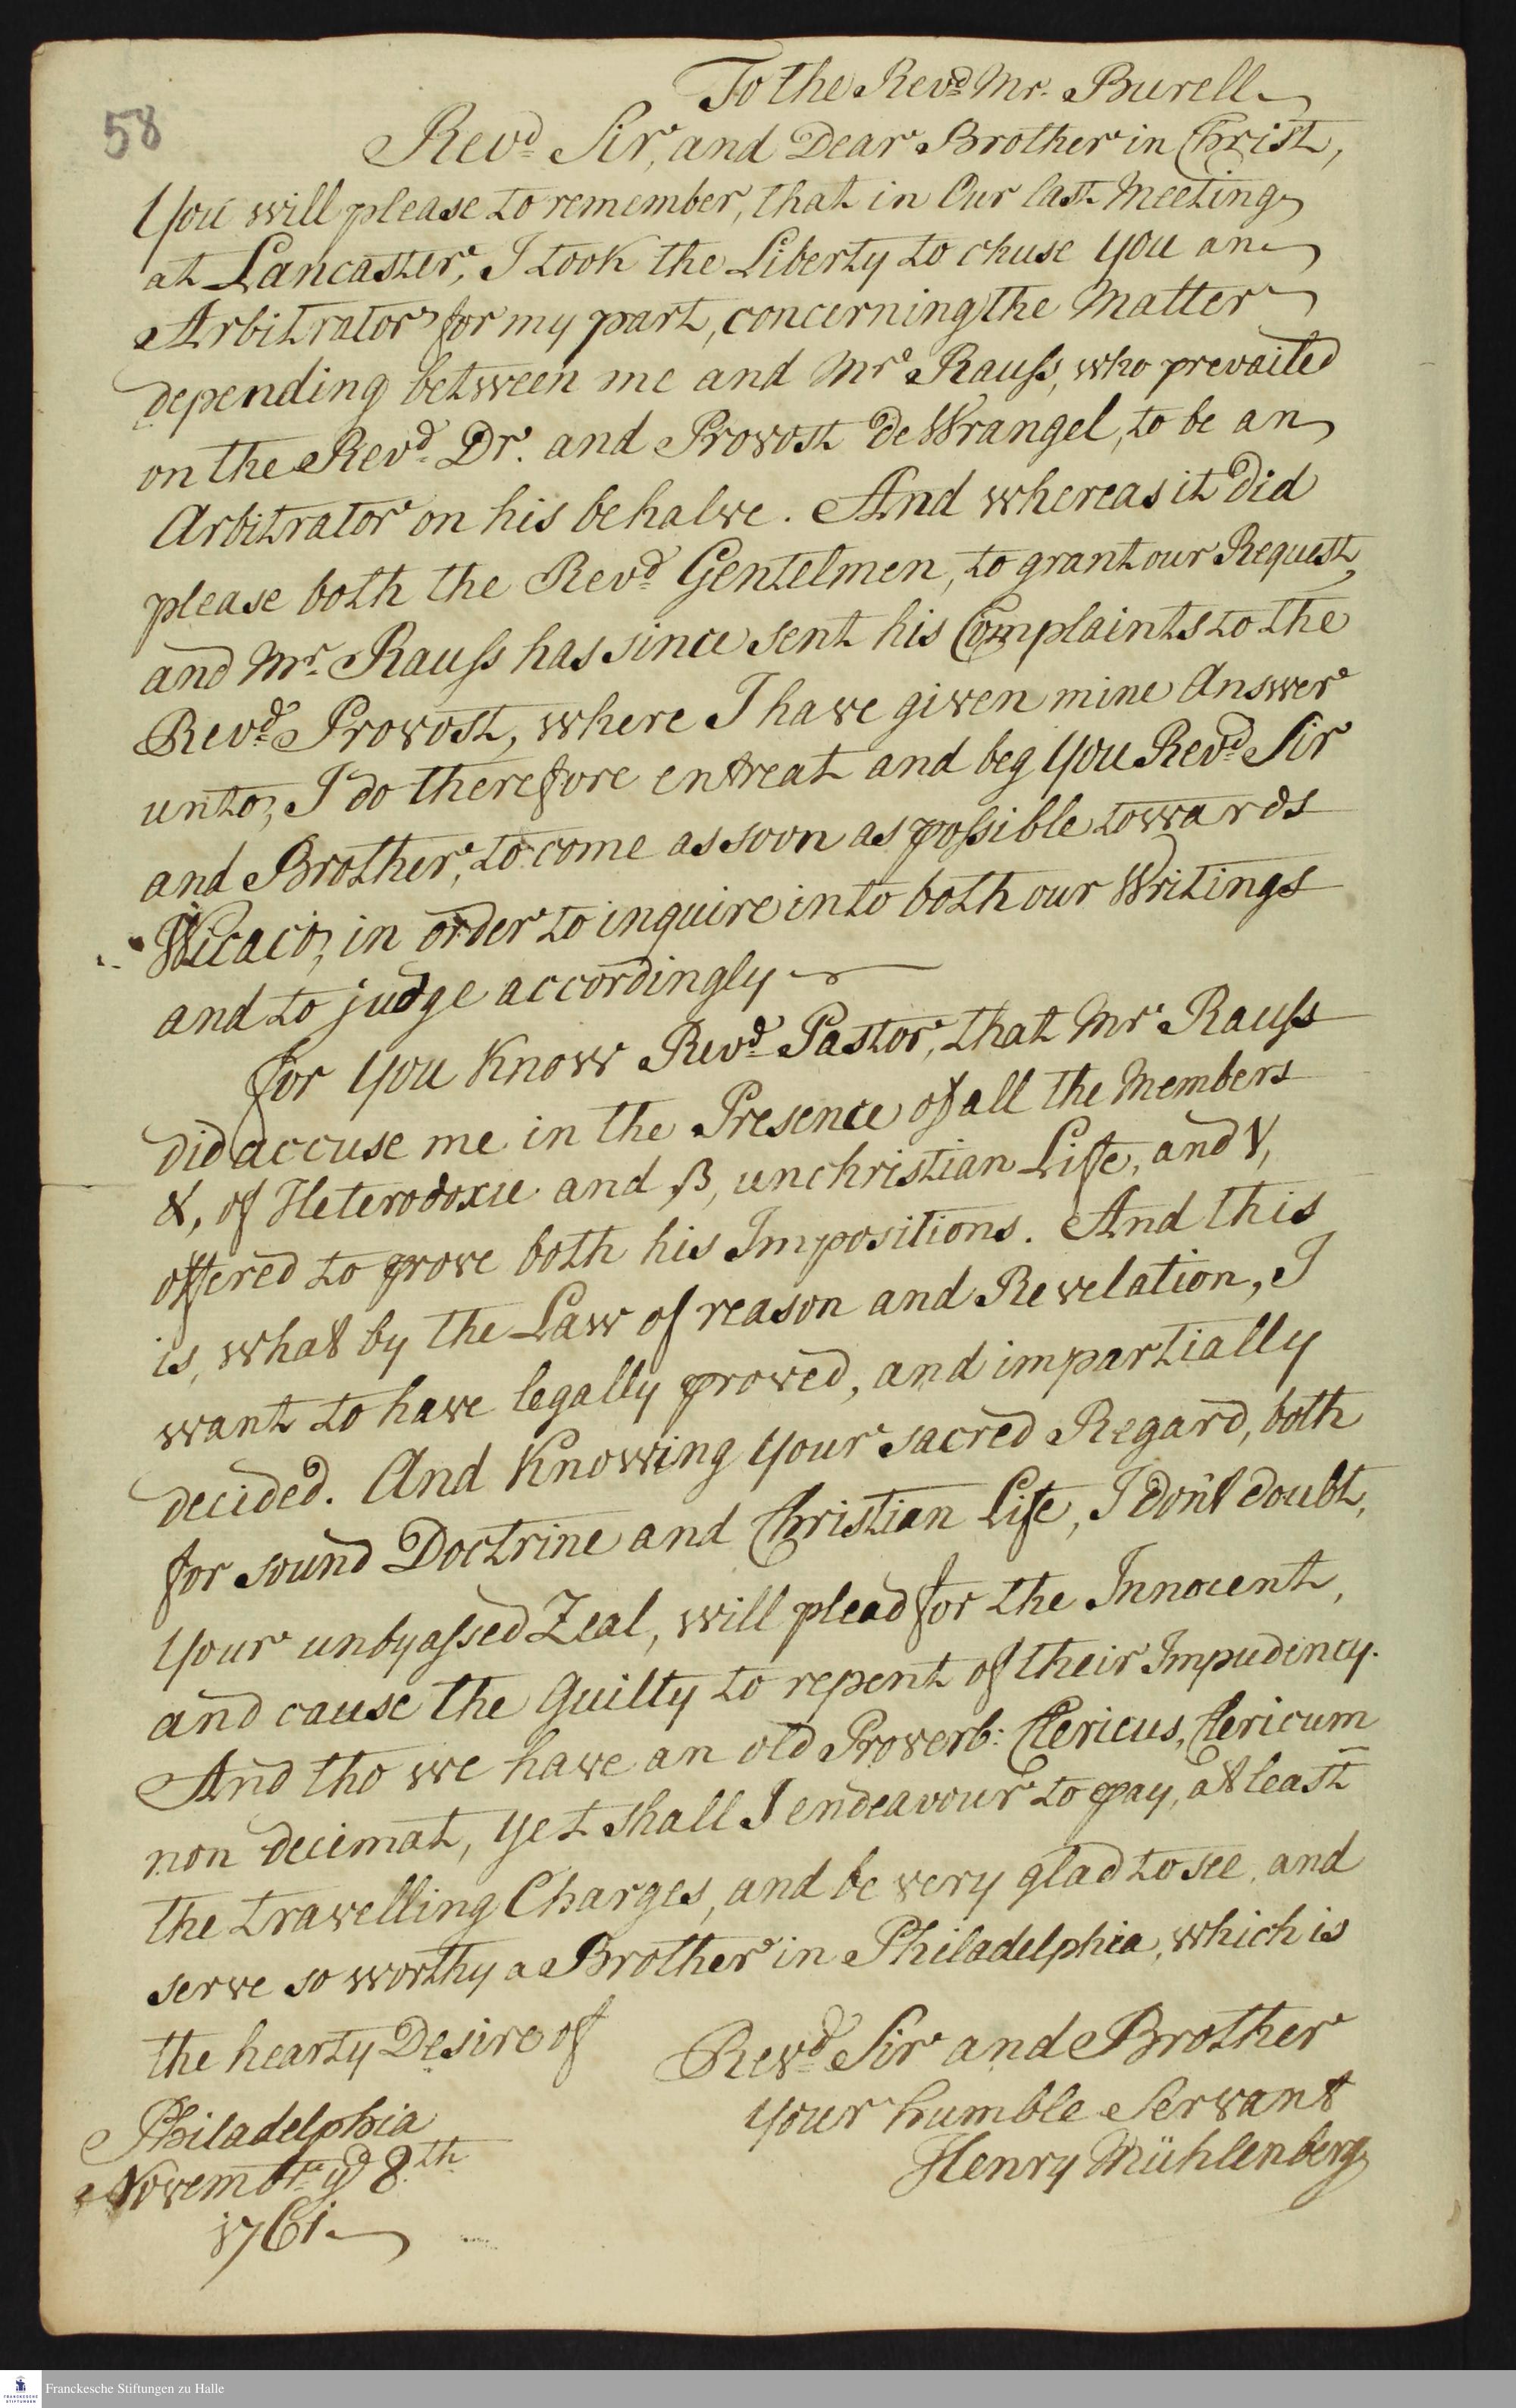 58
To the Revd Mr. Burell
Revd Sir, and Dear Brother in Christ,
You will please to remember, that in Our last Meeting
at Lancaster, I took the Liberty to chuse You an
Arbitrator for my part, concerning the Matter
depending between me and Mr Rauss, who prevailed
on the Revd Dr. and Provost De Wrangel, to be an
Arbitrator on his behalve. And whereas it did
please both the Revd Gentelmen, to grant our Request,
and Mr. Rauss has since sent his Complaints to the
Revd Provost, where I have given mine Answer
unto, I do therefore entreat and beg You Revd Sir
and Brother, to come as soon as possible towards
Wicaco, in order to inquire into both our Writings
and to judge accordingly
for You Know Revd Pastor, that Mr Rauss
did accuse me in the Presence of all the Members
α, of Heterodoxie and β, unchristian Life, and γ,
offered to prove both his Impositions. And this
is, what by the Law of reason and Revelation, I
want to have legally proved, and impartially
decided. And Knowing Your sacred Regard, both
for sound Doctrine and Christian Life, I don't doubt,
Your unbyassed Zeal, will plead for the Innocent,
and cause the Guilty to repent of their Impudency.
And tho we have an old Proverb: Clericus, Clericum
non decimat, Yet shall I endeavour to pay, at least
the travelling Charges, and be very glad to see, and
serve so worthy a Brother in Philadelphia, which is
the hearty Desire of
Revd Sir and Brother
Your humble Servant
Henry Mühlenberg
Philadelphia
Novembr yd 8th
1761
FRANCKESCHE STIFTUNGEN
Franckesche Stiftungen zu Halle